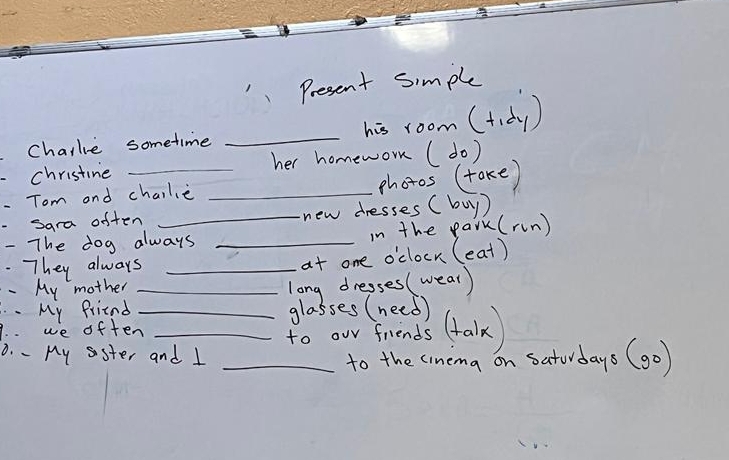 Present Simple
- Charlie sometime ______ his room (tidy)
- Christine ______ her homework (do)
- Tom and charlie ______ photos (take)
- Sara often ______ new dresses (buy)
- The dog always ______ in the park (run)
- They always ______ at one o'clock (eat)
- My mother ______ long dresses (wear)
- My friend ______ glasses (need)
9.- we often ______ to our friends (talk)
0.- My sister and I ______ to the cinema on saturdays (go)